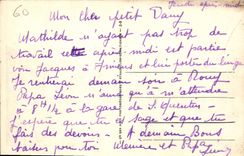 60
après-midi
Mon cher petit Dany
Mathilde n'ayant pas trop de
travail cette après midi est partie
voir Jacques à et lui porter du linge
Je rentrerai demain soir à
Papa Léon n'aura qu'à m'attendre
à 8H 1/4 à la gare de St Quentin
j'espère que tu es sage et que tu
fais des devoirs - A demain Bons
baisers pour toi Maman et Papa